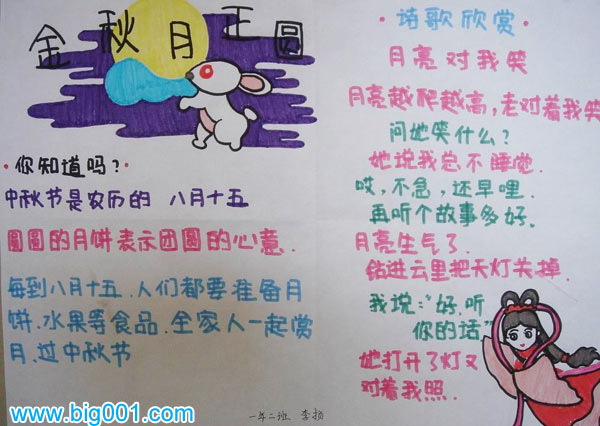 金秋月正圆
·你知道吗？·
中秋节是农历的 八月十五
圓圓的月饼表示团圆的心意.
每到八月十五.人们都要准备月
饼.水果等食品.全家人一起赏
月.过中秋节
·诗歌欣赏·
月亮对我笑
月亮越爬越高,老对着我笑
问她笑什么?
她说我总不睡觉.
哎,不急,还早哩.
再听个故事多好.
月亮生气了.
钻进云里把天灯关掉.
我说:“好.听
你的话”
她打开了灯又
对着我照.
一年二班 李扬
www.big001.com